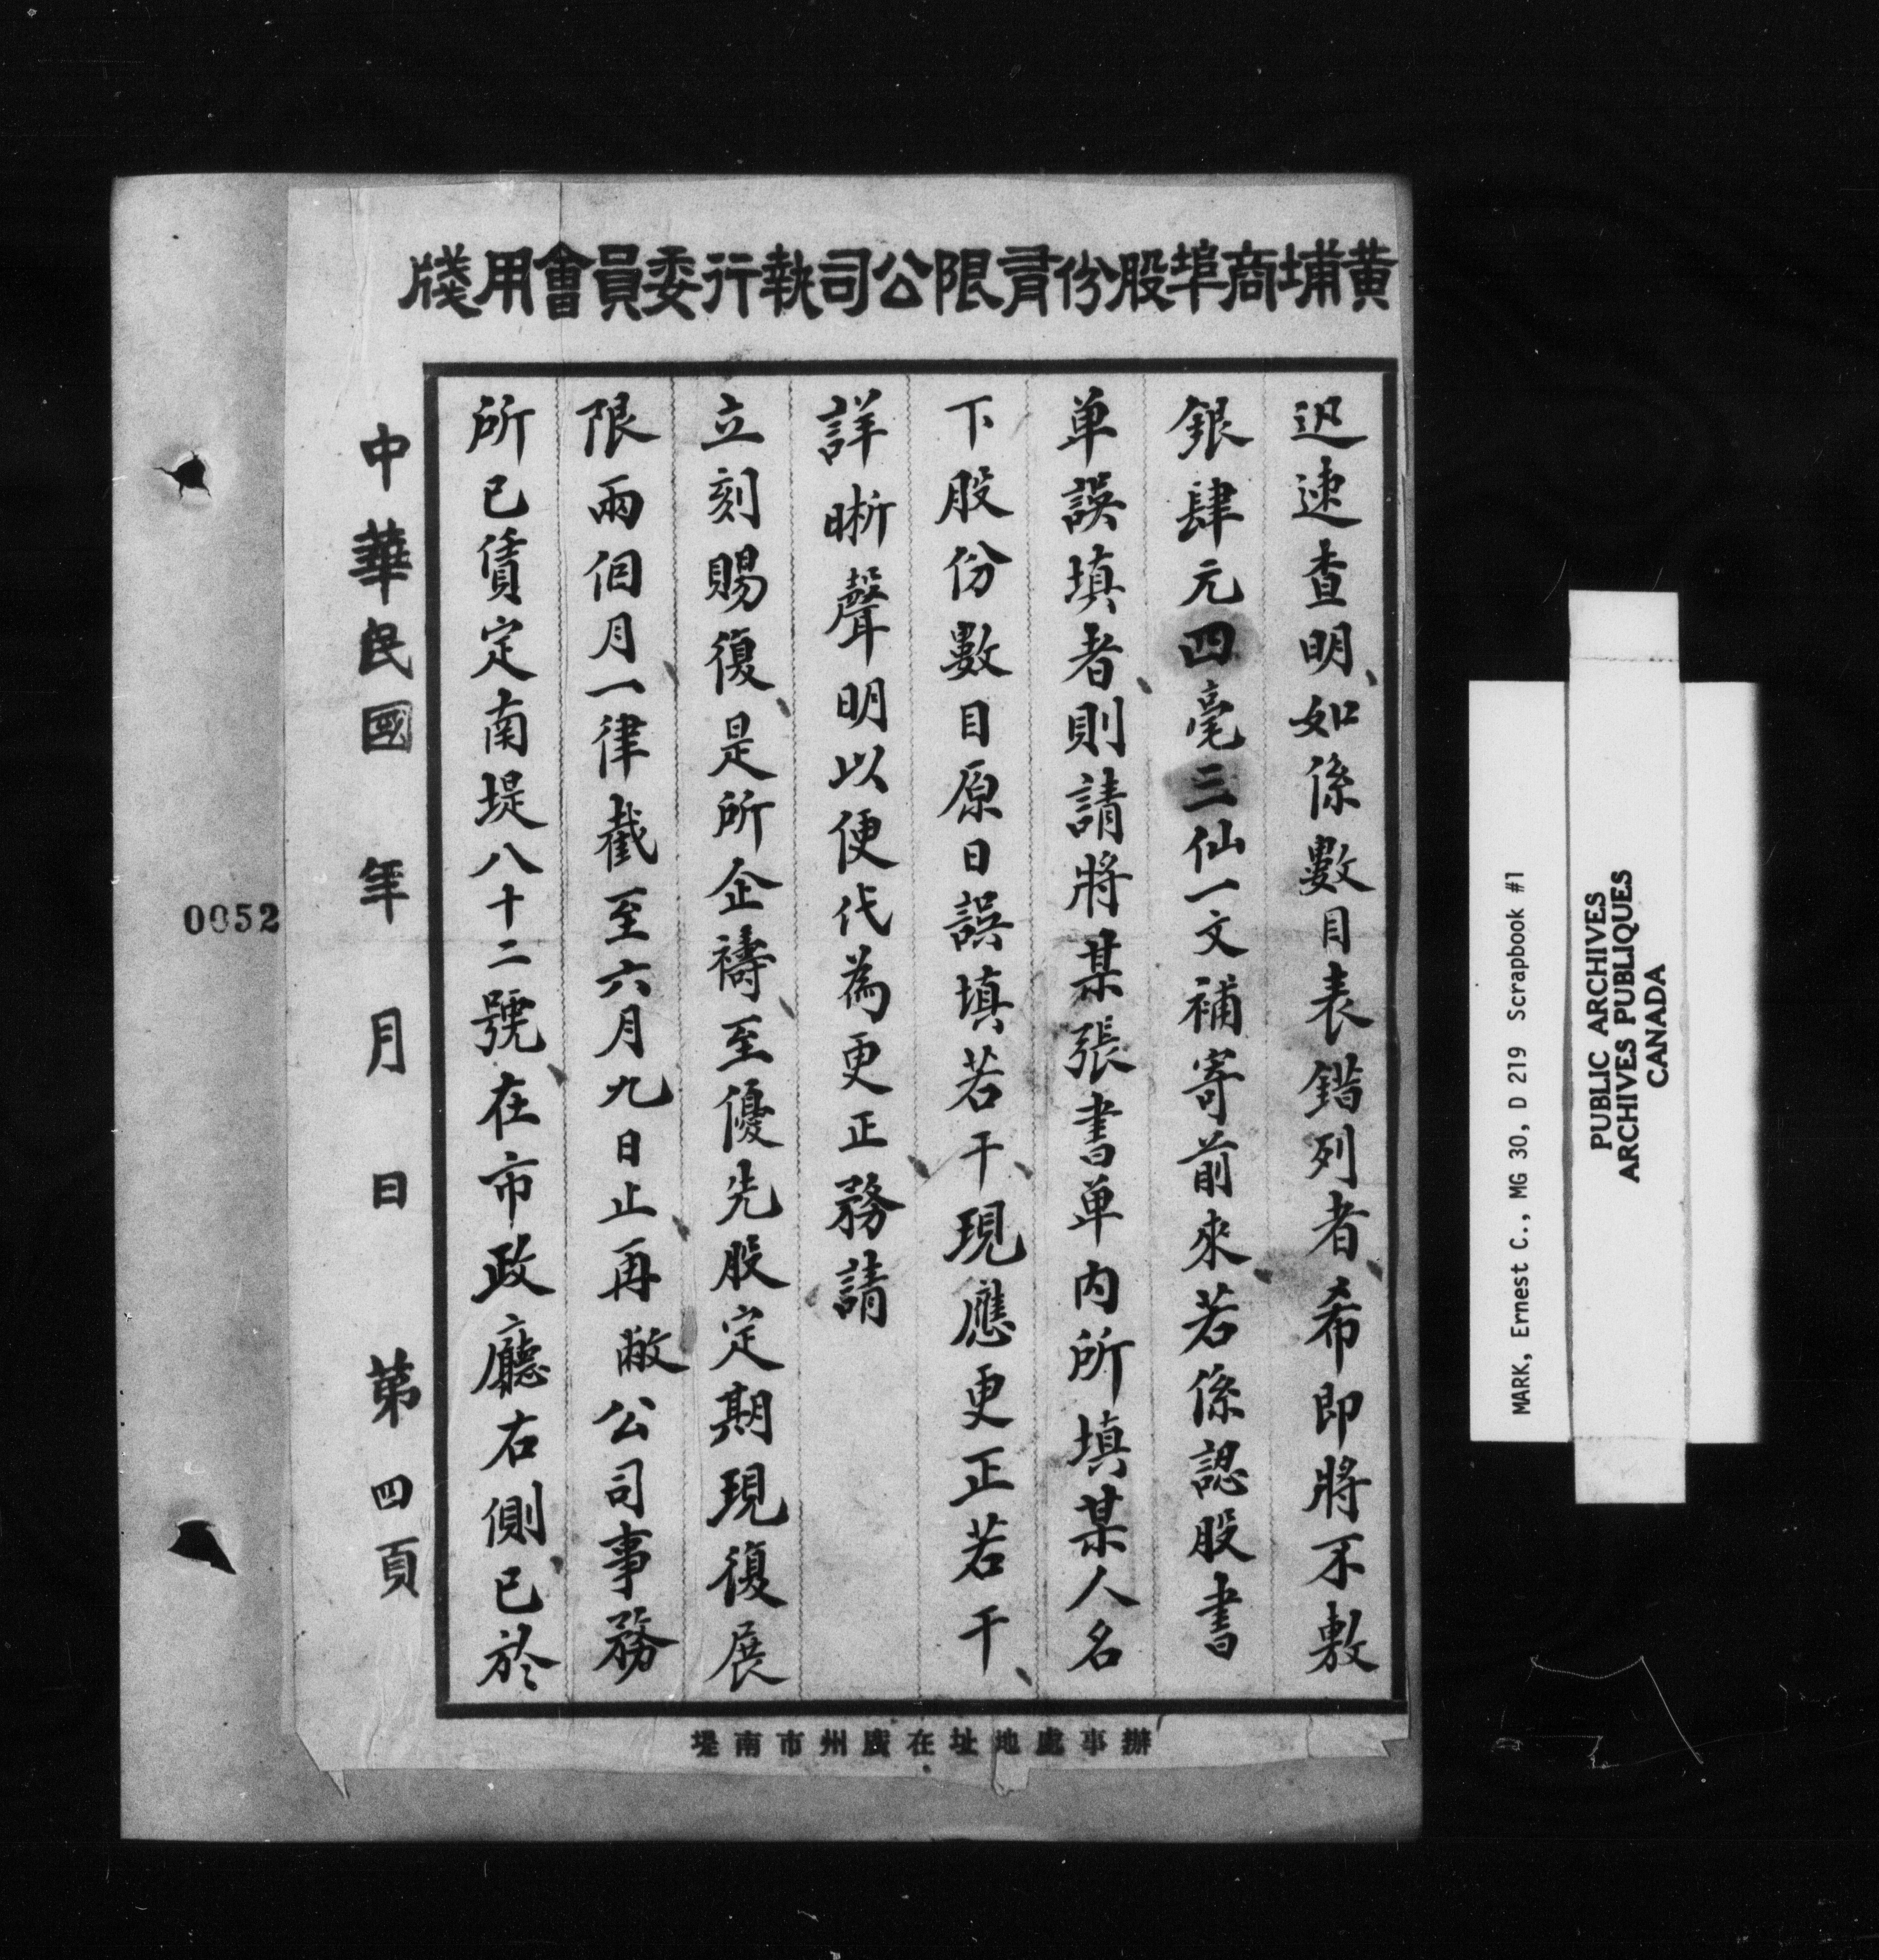 黃埔商埠股份有限公司執行委員會用牋
迅速查明、如係數目表錯列者、希即將不敷
銀肆元四毫三仙一文補寄前來、若係認股書
单誤填者、則請將某張書单内所填某人名
下股份數目原日誤填若干、現應更正若干、
詳晰聲明以便代為更正、務請
立刻賜復、是所企禱、至優先股定期現復展
限兩個月、一律截至六月九日止、再敝公司事務
所已賃定南堤八十二號、在市政廳右側、已於
中華民國 年 月 日 第四頁
辦事處地址在廣州市南堤
0052
MARK, Ernest C., MG 30, D 219 Scrapbook #1
PUBLIC ARCHIVES
ARCHIVES PUBLIQUES
CANADA